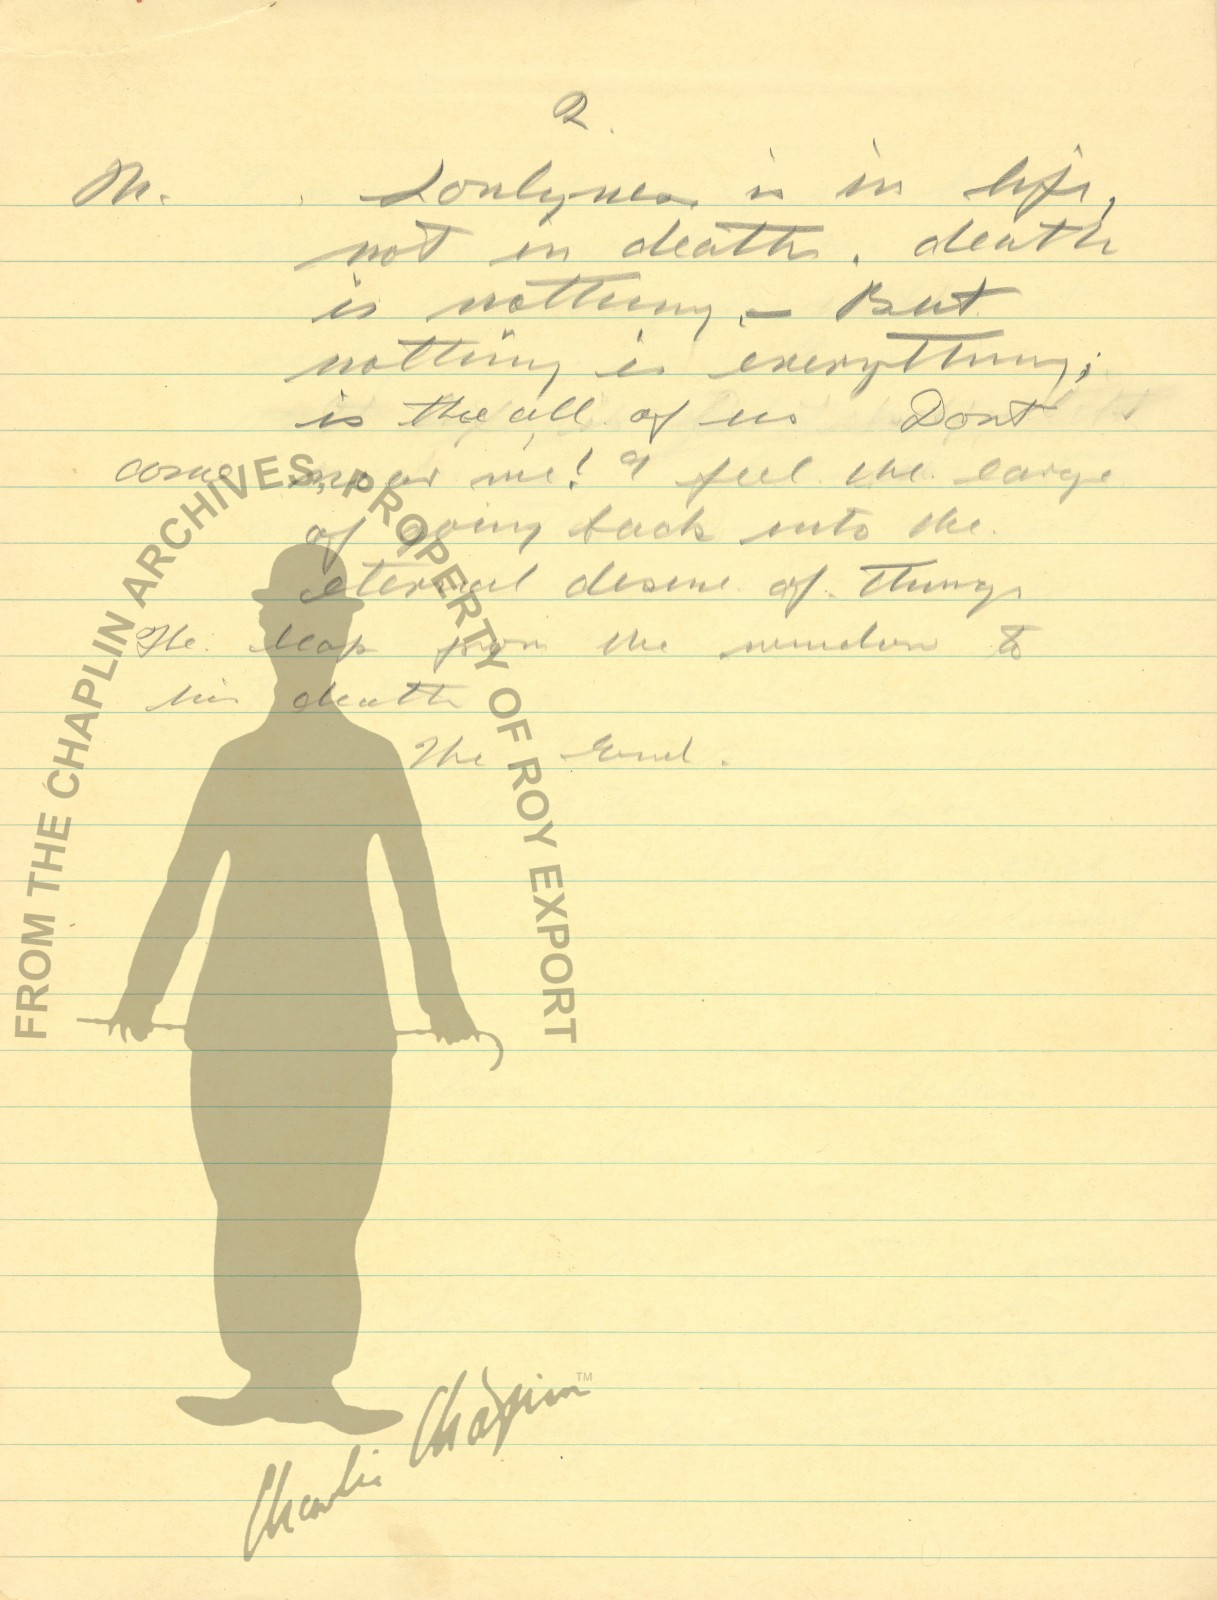 2.
M. . Lonlyness is in life,
not in death. death
is nothing, – But
nothing is everything;
is the all of us Dont
come near me! I feel the large
of going back into the
eternal desire of things
He leap from the window to
his death
The End.
FROM THE CHAPLIN ARCHIVES, PROPERTY OF ROY EXPORT
Charlie Chaplin™